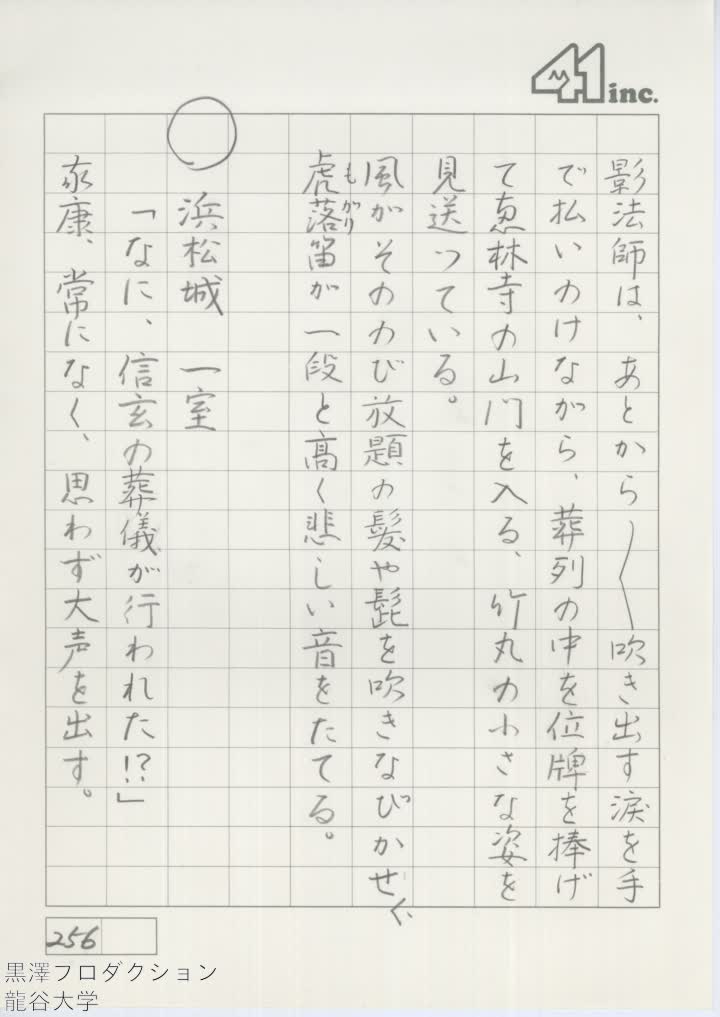 41 inc.
影法師は、あとから〳〵吹き出す涙を手
で払いのけながら、葬列の中を位牌を捧げ
て恵林寺の山門を入る、竹丸の小さな姿を
見送っている。
風がそののび放題の髪や髭を吹きなびかせ、
虎落笛が一段と高く悲しい音をたてる。
もがり
浜松城　一室
「なに、信玄の葬儀が行われた!?」
家康、常になく、思わず大声を出す。
256
黒澤プロダクション
龍谷大学